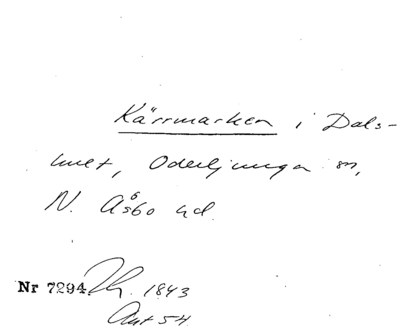 Kärrmarken i Dals-
hult, Oderljunga sn,
N. Åsbo hd.
Nr 7294. 1843
Ant 54